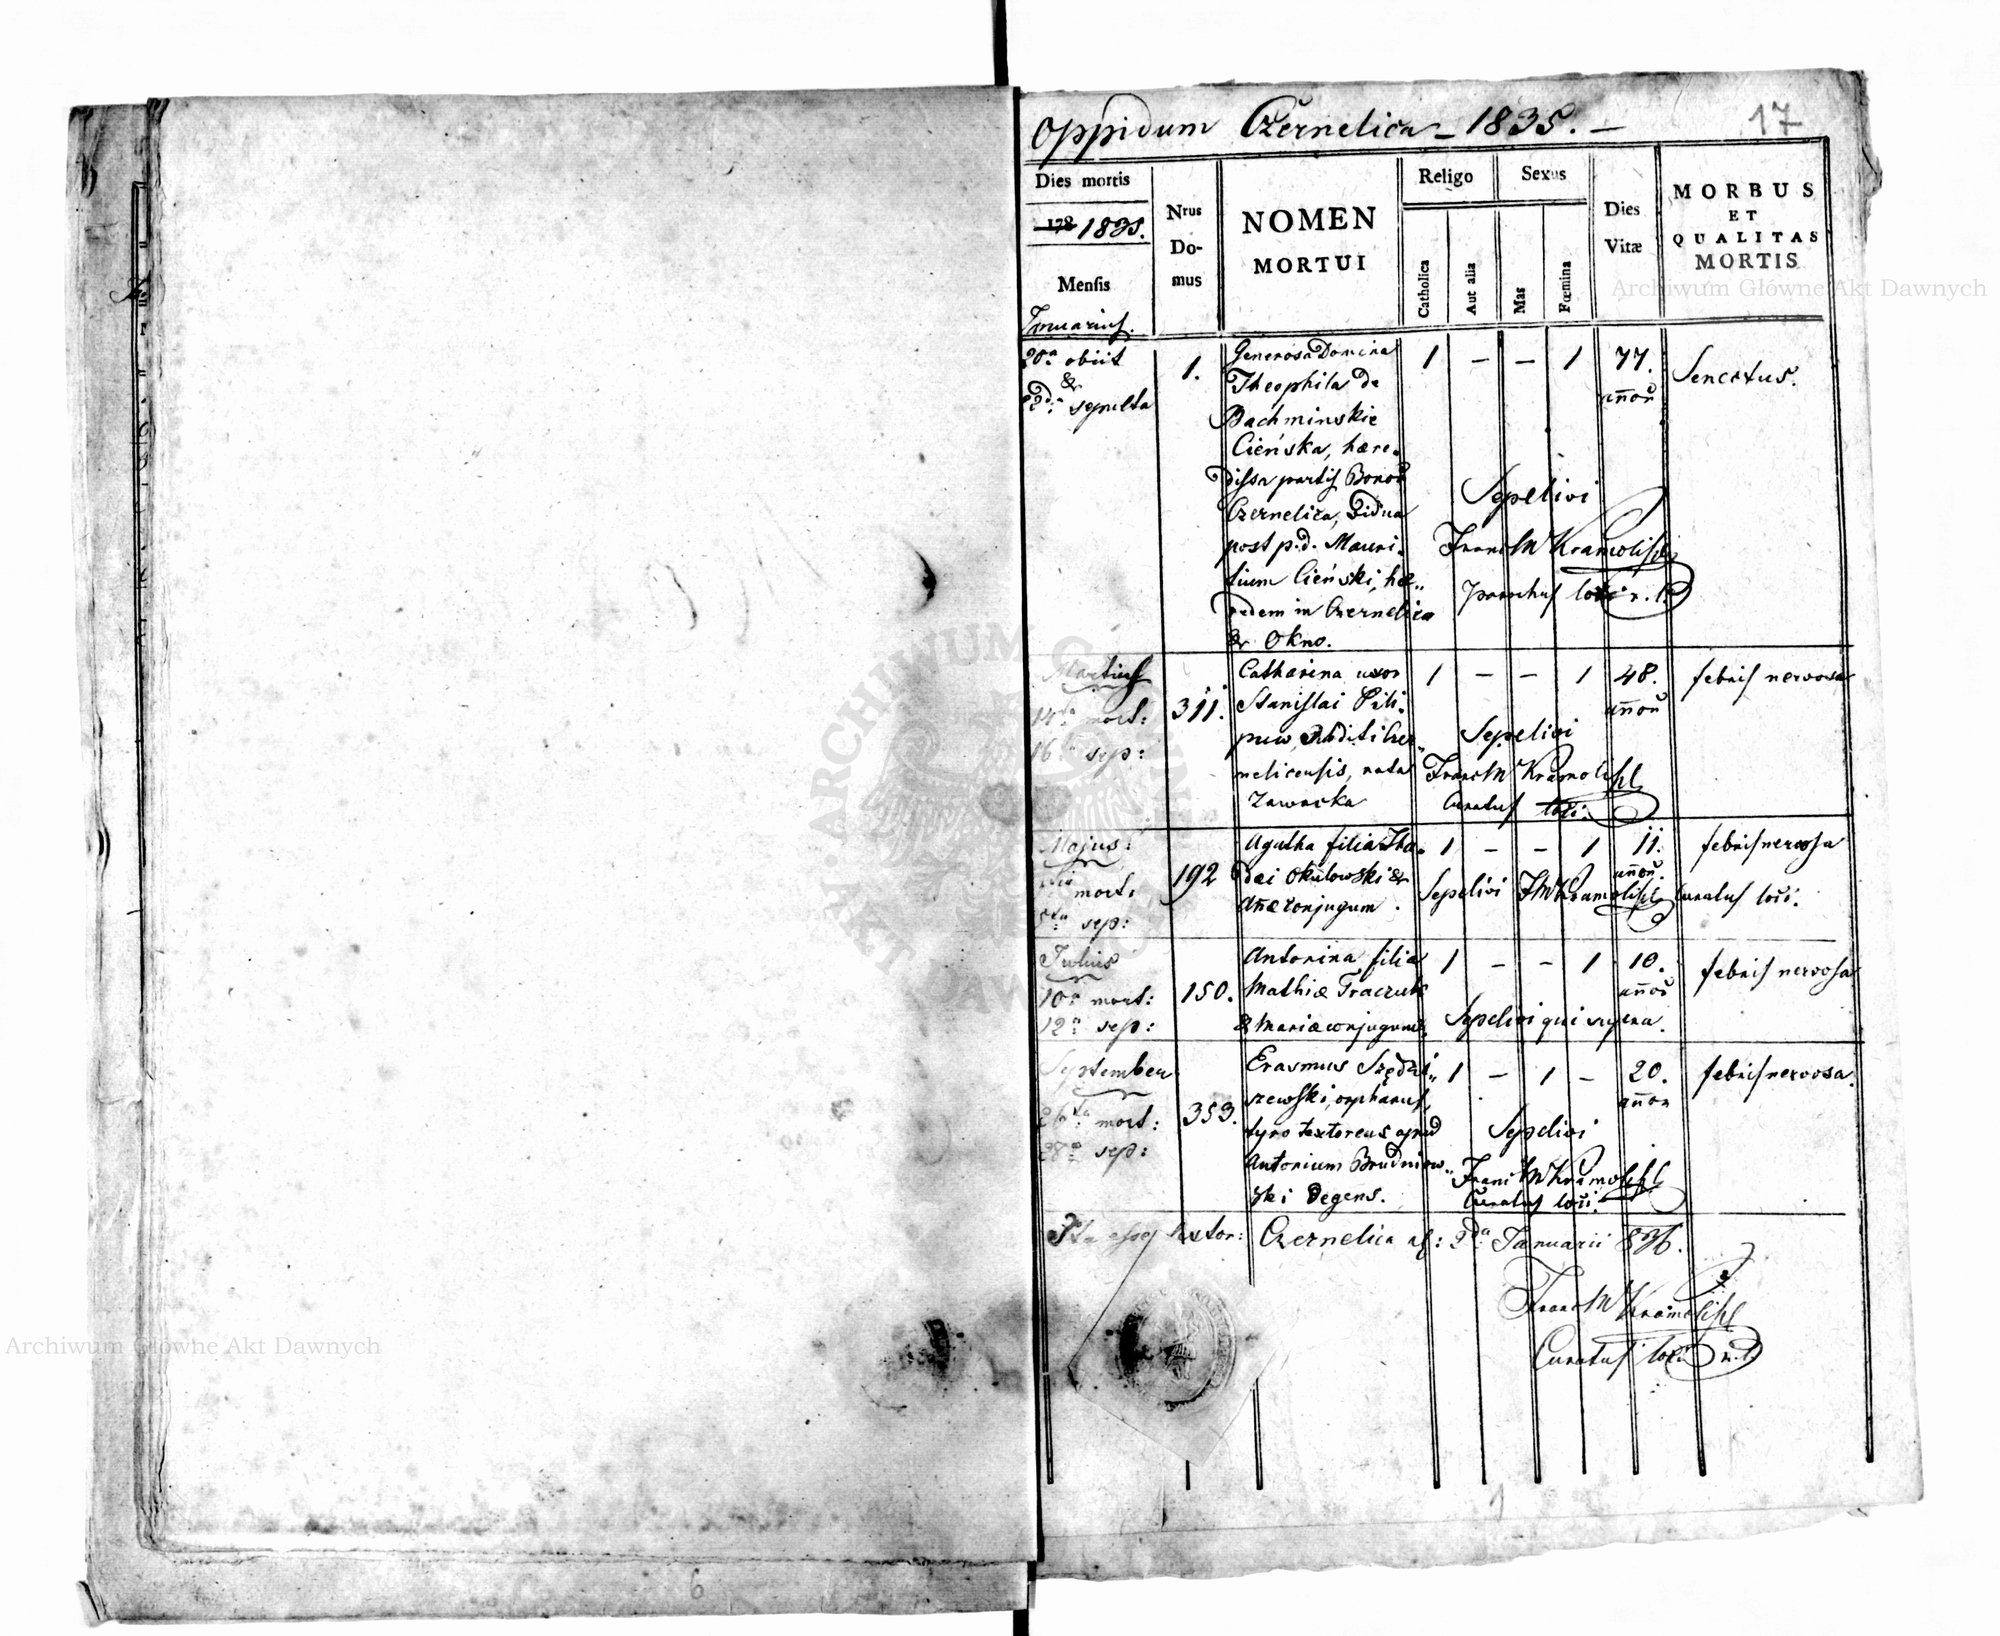 Oppidum Czernelica – 1835. –
17
Dies mortis
178 1835.
Mensis
Januarius.
Nrus
Do-
mus
NOMEN
MORTUI
Religo
Catholica
Aut alia
Sexus
Mas
Fœmina
Dies
Vitæ
MORBUS
ET
QUALITAS
MORTIS
20a obiit
&
22da sepulta
1.
Generosa Domina
Theophila de
Bachminskie
Cieńska, hære-
dissa partis Bonor̄
Czernelica, vidua
post p.d. Mauri-
tium Cieński, hæ-
redem in Czernelica
& Okno.
1 – – 1
77.
annor̄
Senectus.
Sepelivi
Franc M Kramolisch
parochus loci
Martius
14ta mort:
16 sep:
311.
Catharina uxor
Stanislai Pili-
puw, subditi Czer-
nelicensis, nata
Zawacka
1 – – 1
48.
annor̄
febris nervosa
Sepelivi
Franc M Kramolisch
Curatus loci.
Majus:
mort:
5ta sep:
192
Agatha filia Tha-
dæi Okulowski &
Añæ conjugum.
1 – – 1
11.
annor̄.
febris nervosa
Sepelivi F M Kramolisch Curatus loci.
Julius
10a mort:
12a sep:
150.
Antonina filia
Mathiæ Traczuk
& Mariæ conjugum.
1 – – 1
10.
annor̄
febris nervosa
Sepelivi qui supra.
September
26ta mort:
28a sep:
353.
Erasmus Szędzi-
szewski, orphanus,
tyro textoreus apud
Antonium Brudniew-
ski degens.
1 – 1 –
20.
annor
febris nervosa.
Sepelivi
Franc M Kramolisch
Curatus loci.
Ita esse testor: Czernelica 2da Januarii 836.
Franc M Kramolisch
Curatus loci
6
Archiwum Główne Akt Dawnych
Archiwum Główne Akt Dawnych